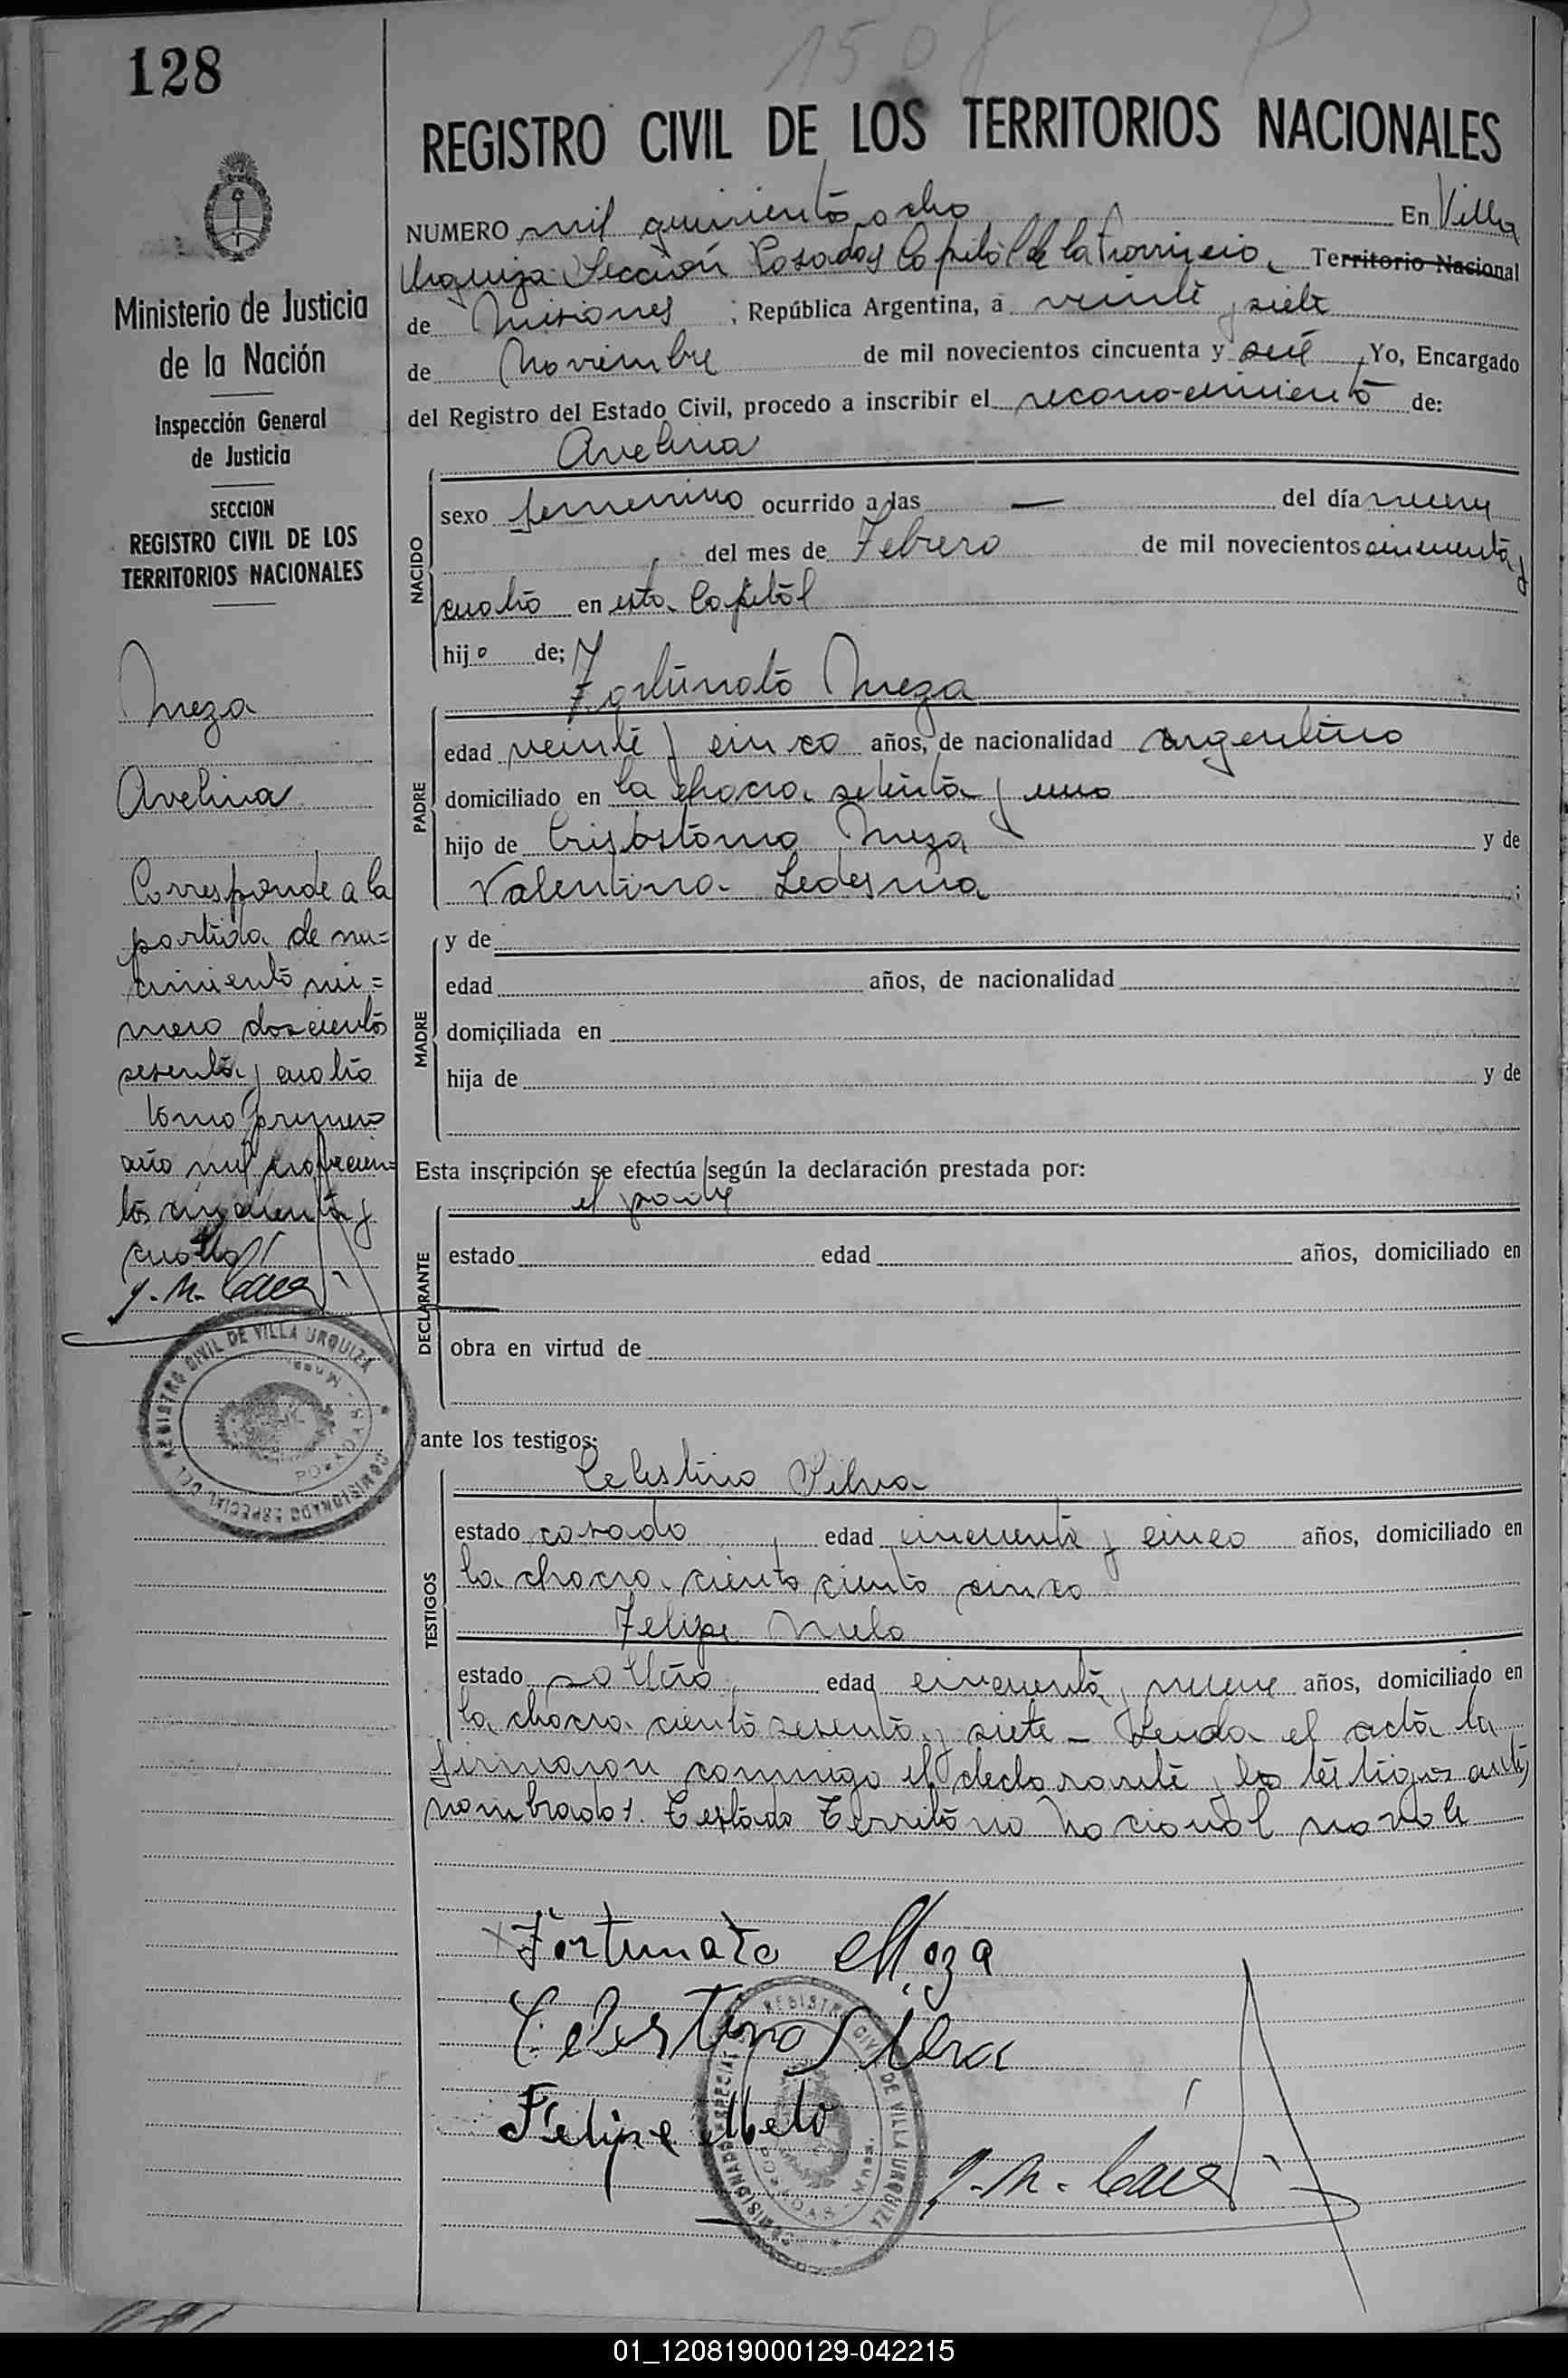 1508 P
128
REGISTRO CIVIL DE LOS TERRITORIOS NACIONALES
NUMERO mil quinientos ocho En Villa
Urquiza Sección Posadas Capital de la Provincia, Territorio Nacional
de Misiones ; República Argentina, a veinte y siete
de Noviembre de mil novecientos cincuenta y seis Yo, Encargado
del Registro del Estado Civil, procedo a inscribir el reconocimiento de:
Avelina
NACIDO
sexo femenino ocurrido a las — del día nueve
del mes de Febrero de mil novecientos cincuenta y
cuatro en esta Capital
hija de;
Fortunato Meza
PADRE
edad veinte y cinco años, de nacionalidad argentino
domiciliado en la chacra setenta y uno
hijo de Crisostomo Meza y de
Valentina Ledesma ;
MADRE
y de
edad años, de nacionalidad
domiciliada en
hija de y de
Esta inscripción se efectúa según la declaración prestada por:
el padre
DECLARANTE
estado edad años, domiciliado en
obra en virtud de
ante los testigos:
Celestino Silva
TESTIGOS
estado casado edad cincuenta y cinco años, domiciliado en
la chacra ciento ciento cinco
Felipe Melo
estado soltero edad cincuenta y nueve años, domiciliado en
la chacra ciento sesenta y siete - Leida el acta la
firmaron conmigo el declarante y los testigos ante
nombrados. Testado Territorio Nacional no vale
Fortunato Meza
Celestino Silva
Felipe Melo
COMISIONADO ESPECIAL DEL REGISTRO CIVIL DE VILLA URQUIZA
POSADAS - Mnes.
Ministerio de Justicia
de la Nación
Inspección General
de Justicia
SECCION
REGISTRO CIVIL DE LOS
TERRITORIOS NACIONALES
Meza
Avelina
Corresponde a la
partida de na=
cimiento nú=
mero doscientos
sesenta y cuatro
tomo primero
año mil novecien=
tos cincuenta y
cuatro
COMISIONADO ESPECIAL DEL REGISTRO CIVIL DE VILLA URQUIZA
POSADAS - Mnes.
01_120819000129-042215